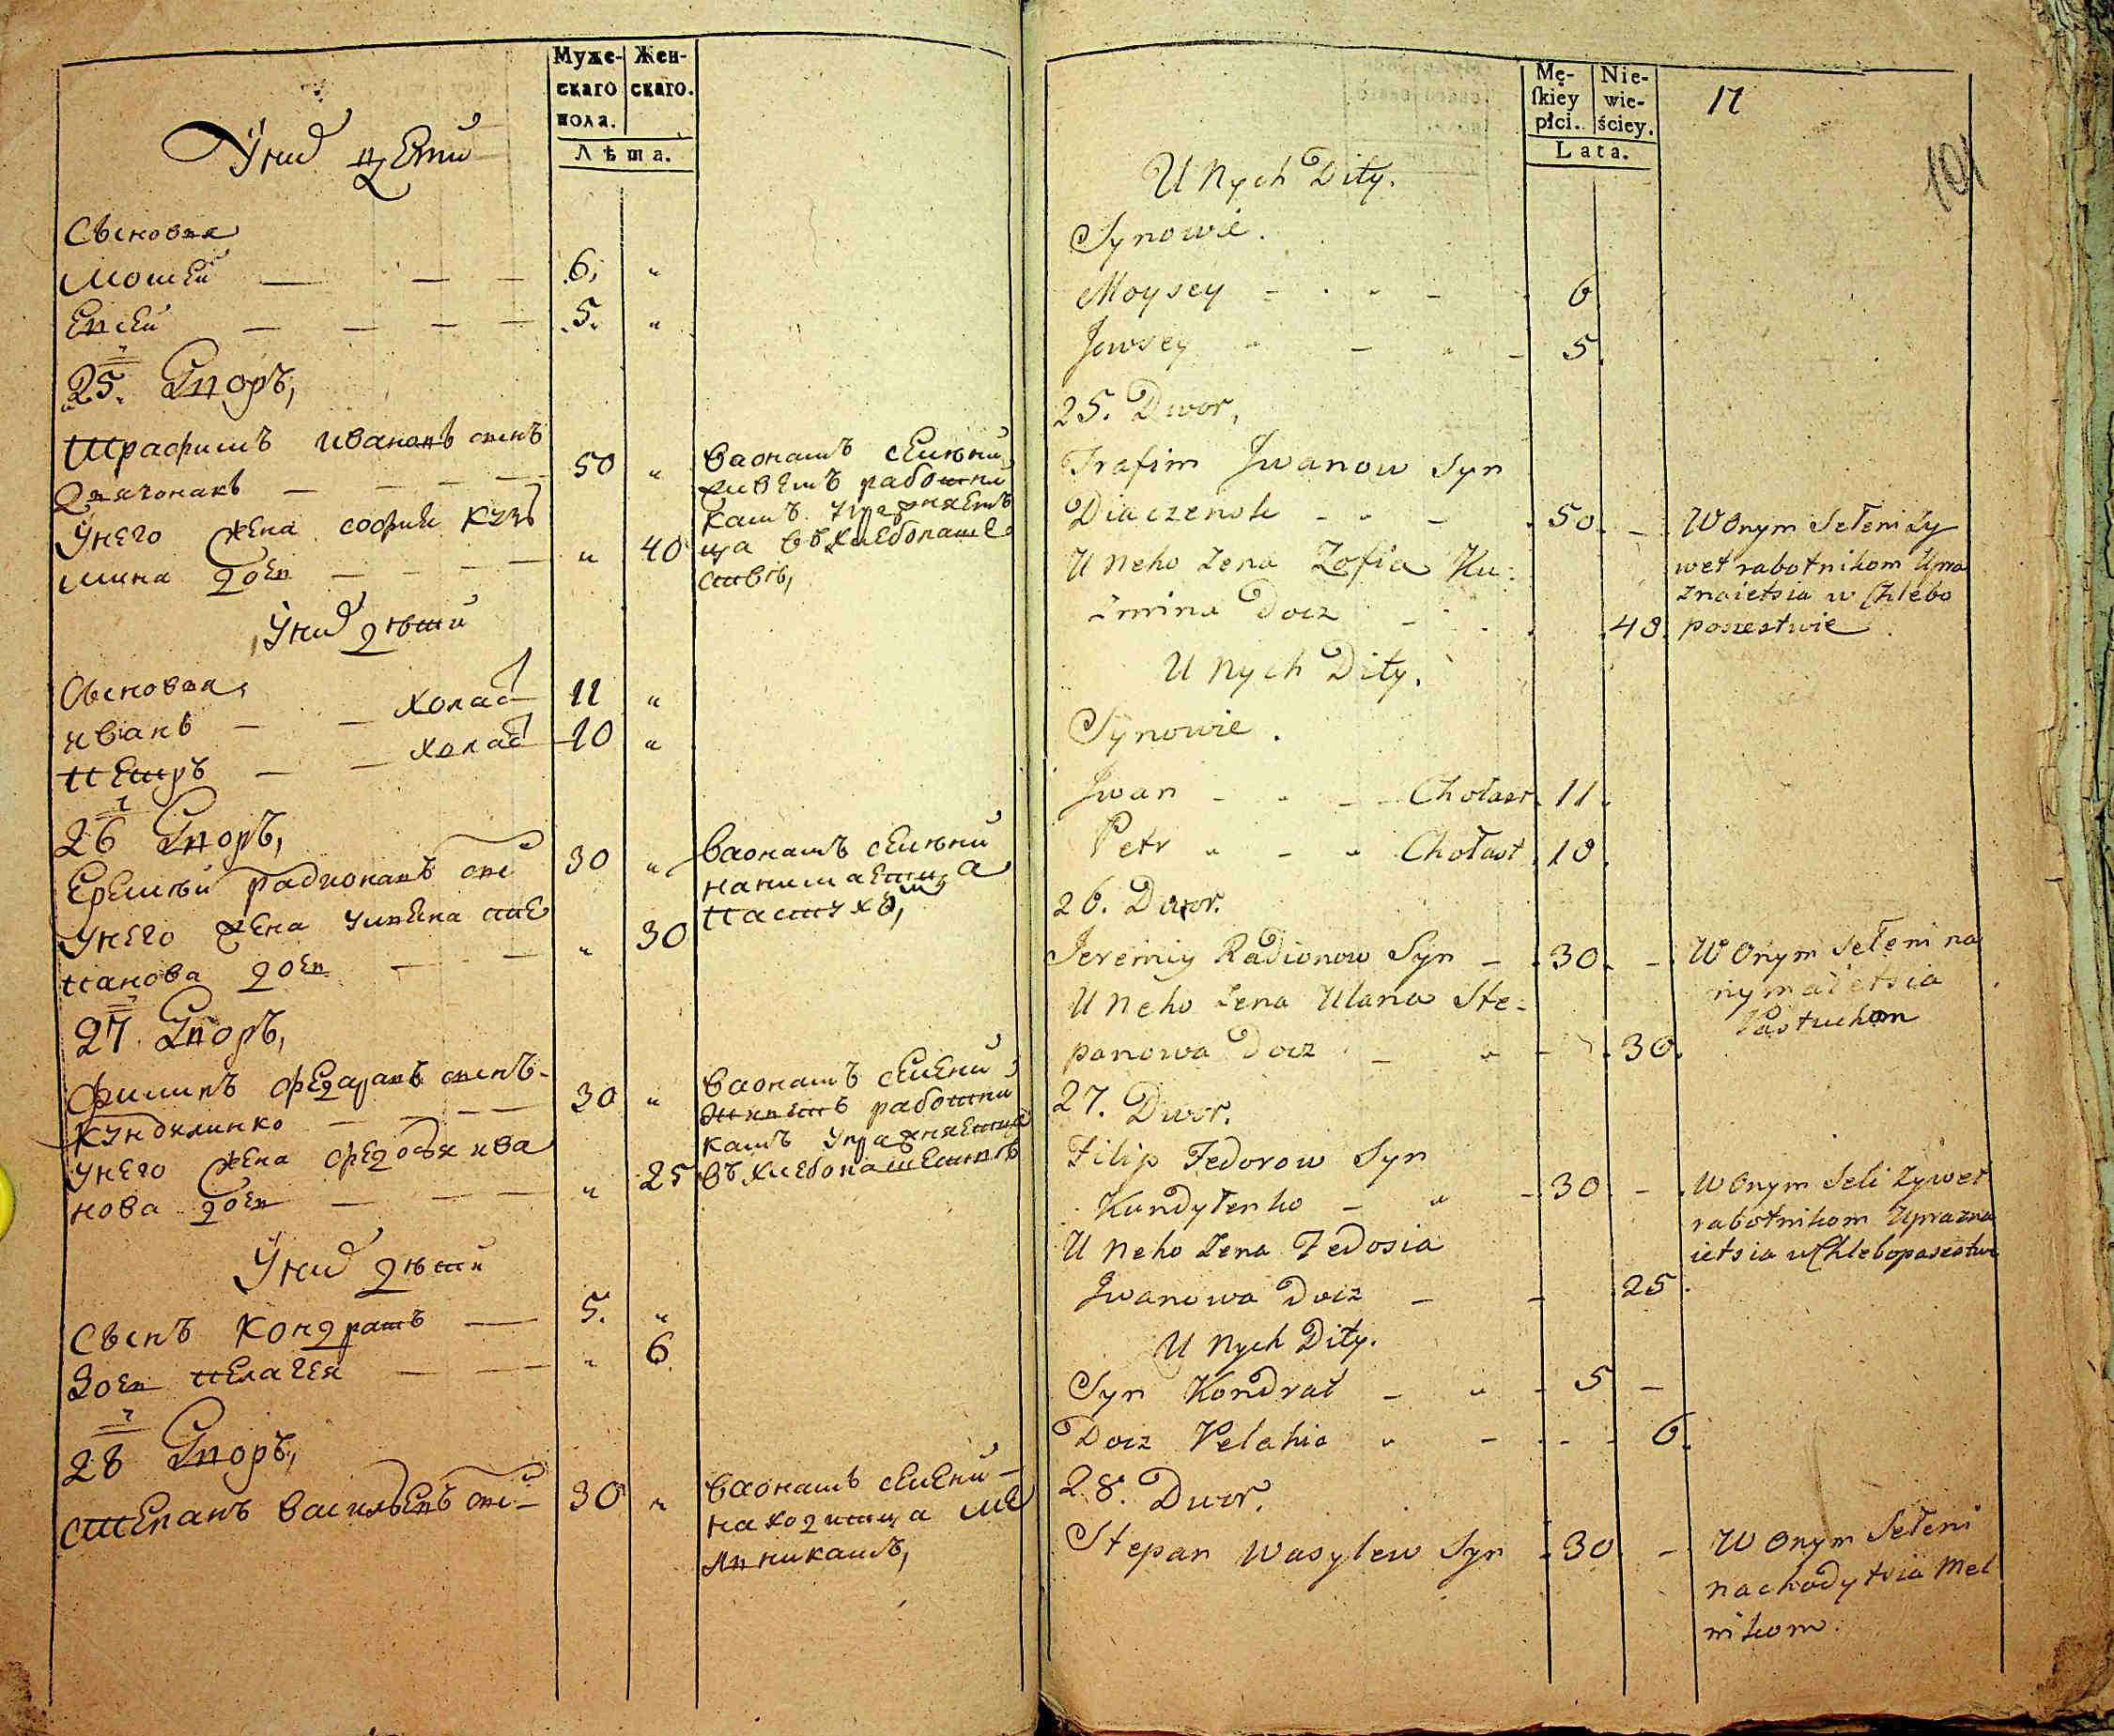 Муже-
скаго
пола.
Жен-
скаго.
Лѣта.
У них дети
Сыновья
Мошей 6 "
Евсей 5. "
25. Дворъ,
Трафимъ Ивановъ сынъ
Дяченокъ 50 "
Ваонамъ селѣнии
живетъ работни
камъ упражняет
ца въ хлебопаше
ствѣ,
У него жена София Кузь
мина дочь " 40
У них дѣти
Сыновья,
иванъ холаст 11 "
Петръ холаст 10 "
26 Дворъ,
Еремѣй Радионавъ сы 30 "
Ваонамъ селѣнии
нанимаетца
пастухом,
У него жена Улиена Сте
панова дочь " 30
27. Дворъ,
Филипъ Федаравъ сынъ
Кундилинко 30 "
Ваонамъ селении
живетъ работни
камъ упражняетца
въ хлебопашествѣ
У него жена Федосья ива
нова дочь " 25
У них дѣти
Сынъ Кондратъ 5. "
Дочь Пелагея " 6
28 Дворъ,
Степанъ Васильевъ сы 30 "
Ваонамъ селении
находитца ме
лникамъ,
Mę-
ſkiey
płci.
Nie-
wie-
ściey.
Lata.
17
101
U Nych Dity.
Synowie.
Moysey 6
Jewsey 5.
25. Dwor,
Trafim Jwanow Syn
Diaczenok 50. -
W Onym Seleni Zy
wet rabotnikom Upra
znaietsia w Chlebo
paszestwie
U Neho Zena Zofia Ku:
zmina Docz 40.
U Nych Dity.
Synowie.
Jwan Chołast 11.
Petr Chołast 10.
26. Dwor.
Jeremiy Radionow Syn 30. -
W Onym Seleni na
nymaietsia
Pastuchom
U Neho Zena Ulana Ste-
panowa Docz 30.
27. Dwor.
Filip Fedorow Syn
Kundyłenko 30 -
W Onym Seli Zywet
rabotnikom Uprazna
ietsia w Chlebopasestwi
U Neho Zena Fedosia
Jwanowa Docz 25.
U Nych Dity.
Syn Kondrat 5 -
Docz Pelahia 6.
28. Dwor.
Stepan Wasylew Syn 30 -
W Onym Seleni
nachodytsia Mel
nikom.